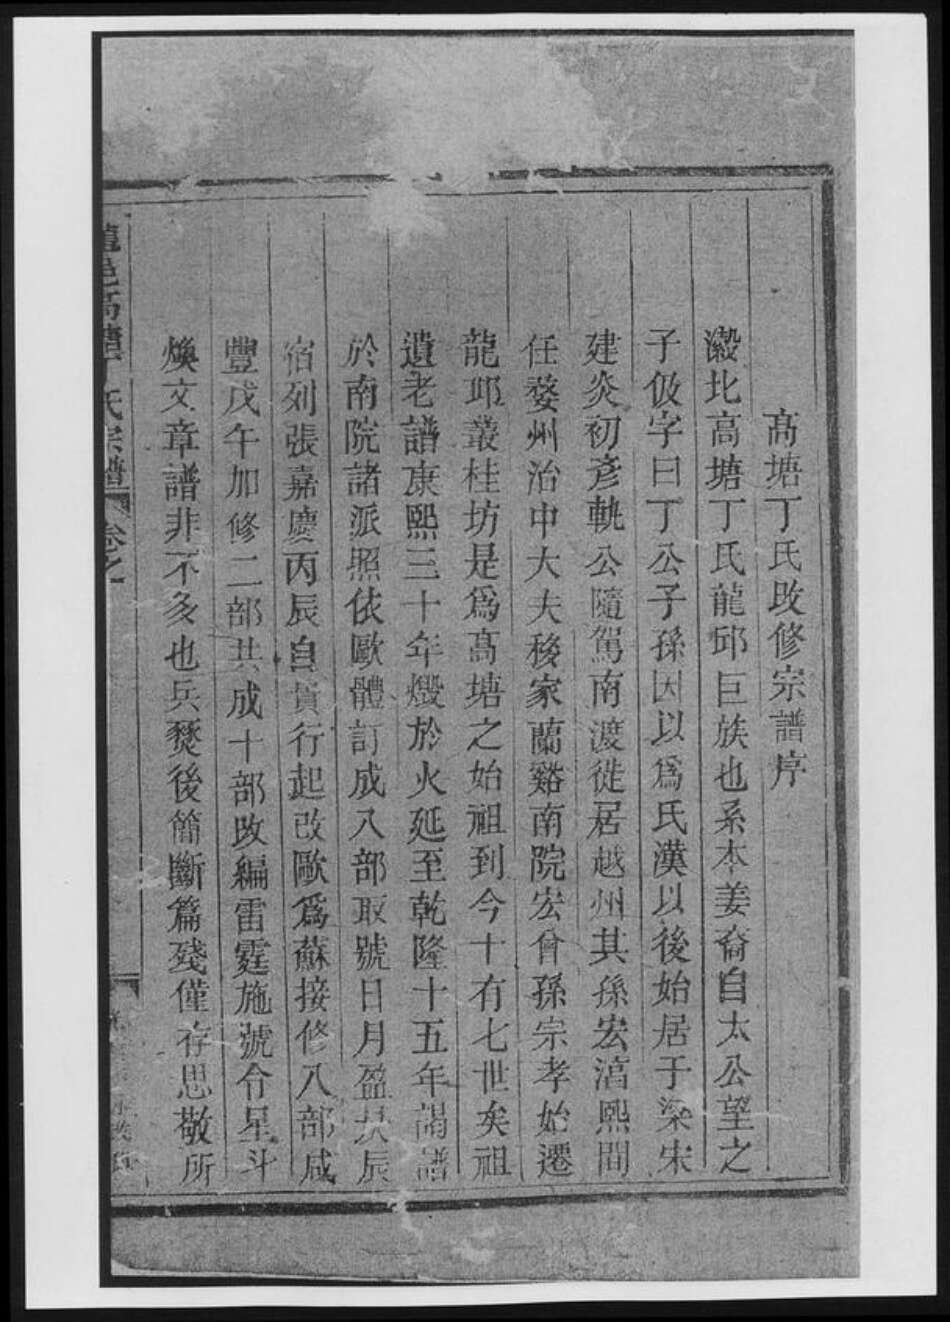 高塘丁氏改修宗譜序
瀔北高塘丁氏龍邱巨族也系本姜裔自太公望之
子伋字曰丁公子孫因以爲氏漢以後始居于梁宋
建炎初彥軌公隨駕南渡徙居越州其孫宏湻熙間
任婺州治中大夫移家蘭谿南院宏曾孫宗孝始遷
龍邱叢桂坊是爲高塘之始祖到今十有七世矣祖
遺老譜康熙三十年燬於火延至乾隆十五年謁譜
於南院諸派照依歐體訂成八部取號日月盈昃辰
宿列張嘉慶丙辰自貢行起改歐爲蘇接修八部咸
豐戊午加修二部共成十部改編雷霆施號令星斗
煥文章譜非不多也兵燹後簡斷篇殘僅存思敬所
龍邑高塘丁氏宗譜 卷之一